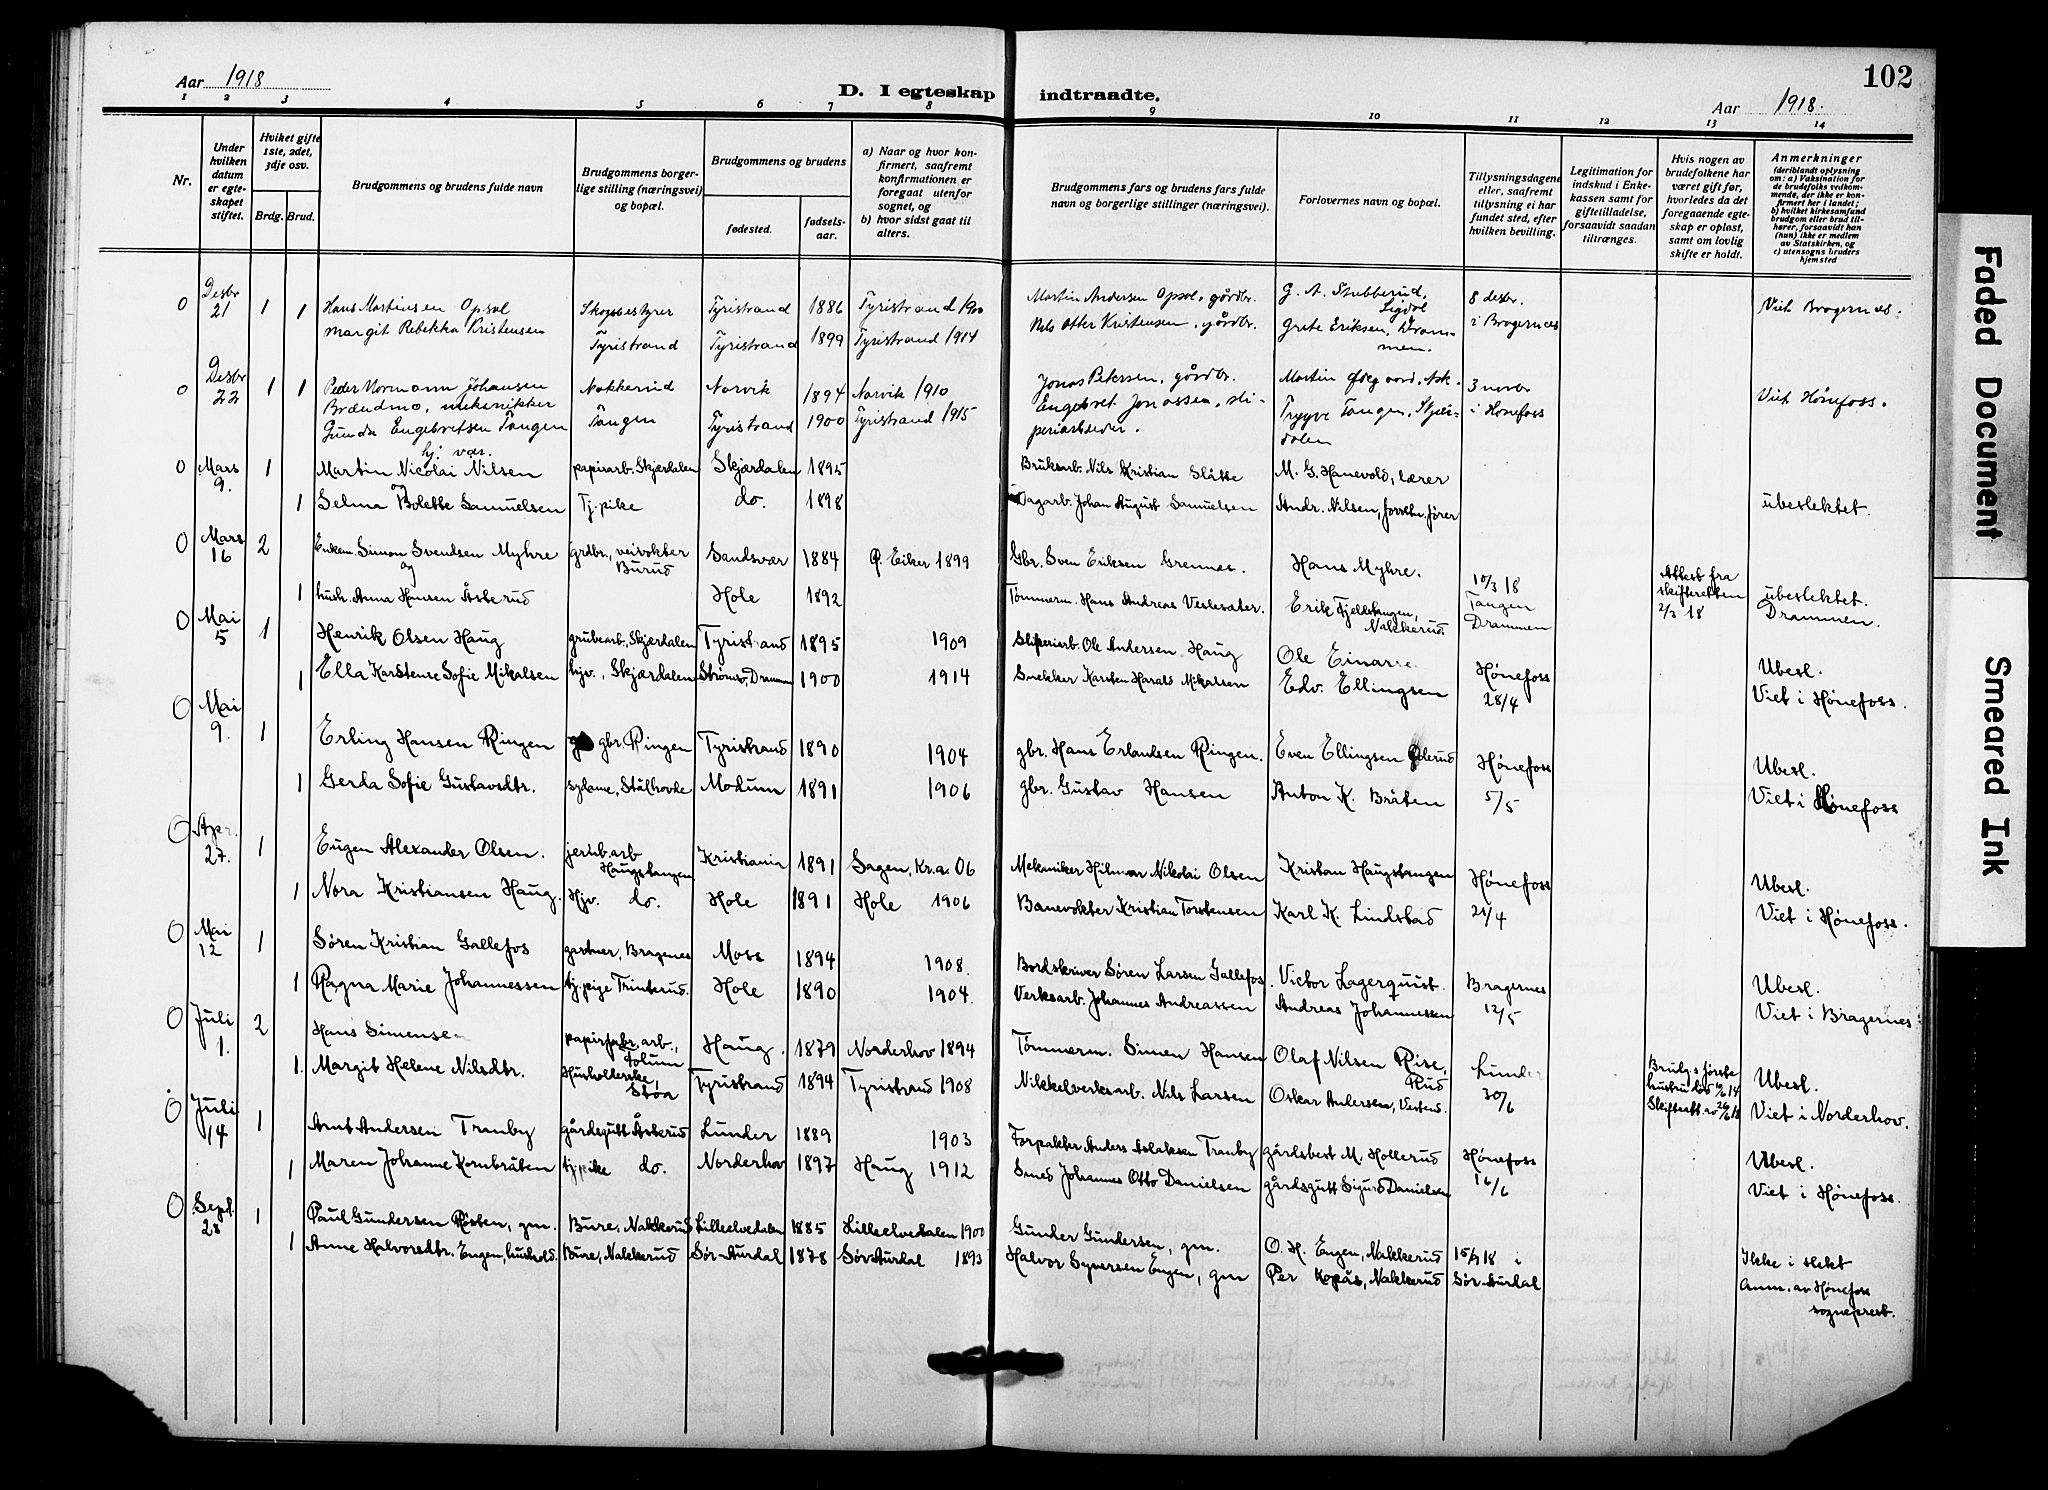 Aar 1918
D. I egteskap indtraadte.
Aar 1918.
102
1 2 3 4 5 6 7 8 9 10 11 12 13 14
Nr.
Under hvilken datum er egte-skapet stiftet.
Hvilket gifte 1ste, 2det, 3dje osv.
Brdg. Brud.
Brudgommens og brudens fulde navn
Brudgommens borger-lige stilling (næringsvei) og bopæl.
Brudgommens og brudens
fødested.
fødsels-aar.
a) Naar og hvor kon-firmert, saafremt konfirmationen er foregaat utenfor sognet, og
b) hvor sidst gaat til alters.
Brudgommens fars og brudens fars fulde navn og borgerlige stillinger (næringsvei).
Forlovernes navn og bopæl.
Tillysningsdagene eller, saafremt tillysning ei har fundet sted, efter hvilken bevilling.
Legitimation for indskud i Enke-kassen samt for giftetilladelse, forsaavidt saadan tiltrænges.
Hvis nogen av brudefolkene har været gift før, hvorledes da det foregaaende egte-skap er opløst, samt om lovlig skifte er holdt.
Anmerkninger
(deriblandt oplysning om: a) Vaksination for de brudefolks vedkom-mende, der ikke er kon-firmert her i landet; b) hvilket kirkesamfund brudgom eller brud til-hører, forsaavidt han (hun) ikke er medlem av Statskirken, og c) utensogns bruders hjemsted
0 Desbr 21 1 1 Hans Martinsen Opsal Skogbestyrer Tyristrand 1886 Tyristrand 1900 Martin Andersen Opsal, gårdbr. G. A. Stubberud, Sigdal 8 desbr. Viet Bragernes.
Margit Rebekka Kristensen Tyristrand Tyristrand 1899 Tyristrand 1914 Nils Otter Kristensen, gårdbr. Grete Eriksen, Drammen. i Bragernes
0 Desbr 22 1 1 Peder Normann Johansen Nakkerud Narvik 1894 Narvik 1910 Jonas Petersen, gårdbr. Martin 3 novbr Viet Hønefoss.
Brændmo, mekanikker
Gunda Engebretsen Tangen Tangen Tyristrand 1900 Tyristrand 1915 Engebret Jonassen, sli-periarbeider. Trygve Tangen, Skjær-dalen i Hønefoss
hj. vær.
0 Mars 9. 1 Martin Nicolai Nilsen papirarb. Skjærdalen Skjærdalen 1895 Bruksarb. Nils Kristian Slåtte M. G. Hanevold, lærer
og
1 Selma Bolette Samuelsen Tj. pike do. 1898 Dagarb. Johan August Samuelsen Andr. Nilsen, forretn.fører ubeslektet.
0 Mars 16 2 Enkem. Simon Svendsen Myhre grdbr., veivokter Burud Sandsvær 1884 Ø. Eiker 1899 Gbr. Sven Eriksen Grennes. Hans Myhre. 10/3 18 Attest fra skifteretten 2/3 18
og
1 hush. Anna Hansen Åsterud Hole 1892 Tømmerm. Hans Andreas Veslesæter. Erik Fjeldstangen, Nakkerud. Tangen Drammen ubeslektet. Drammen.
0 Mai 5 1 Henrik Olsen Haug grubearb., Skjærdalen Tyristrand 1895 1909 Sliperiarb. Ole Andersen Haug Ole Einar
1 Ella Karstense Sofie Mikalsen hjv., Skjærdalen Strømsø, Drammen 1900 1914 Snekker Karsten Harald Mikalsen Edv. Ellingsen Hønefoss 28/4 Ubesl. Viet i Hønefoss.
0 Mai 9. 1 Erling Hansen Ringen gbr. Ringen Tyristrand 1890 1904 gbr. Hans Erlandsen Ringen. Even Ellingsen Hønefoss Ubesl.
1 Gerda Sofie Gustavsdtr. sydame, Stålhovde Modum 1891 1906 gbr. Gustav Hansen Anton K. Bråten 5/5 Viet i Hønefoss
0 Apr. 27. 1 Eugen Alexander Olsen. jernb.arb Haugstangen Kristiania 1891 Sagen, Kr.a. 06 Mekaniker Hilmar Nikolai Olsen Kristian Haugstangen Hønefoss Ubesl.
1 Nora Kristiansen Haug. Hjv. do. Hole 1891 Hole 1906 Banevokter Kristian Torstensen Karl K. Lindstad 21/4 Viet i Hønefoss.
0 Mai 12 1 Søren Kristian Gallefos gartner, Bragenes Moss 1894 1908. Bordskriver Søren Larsen Gallefos. Victor Lagerquist. Bragernes Ubesl.
1 Ragna Marie Johannessen tj.pige Trinterud. Hole 1890 1904. Verksarb. Johannes Andreassen Andreas Johannessen 12/5 Viet i Bragernes
0 Juli 1. 2 Hans Simense papirfabr.arb., Haug. 1879 Norderhov 1894 Tømmerm. Simen Hansen Olaf Nilsen Rise, Rud Lunder Brudgs første hustru død
1. Margit Helene Nilsdtr. Husholderske, Støa Tyristrand 1894 Tyristrand 1908 Nikkelverksarb. Nils Larsen Oskar Andersen, 30/6 Skifteatt. av Ubesl. Viet i Norderhov.
0 Juli 14 1 Arnt Andersen Tranby gårdsgutt Åsterud Lunder 1889 1903 Forpakter Anders Aslaksen Tranby gårdsbest. M. Hollerud Hønefoss Ubesl.
1 Maren Johanne Kornbråten tj.pike do. Norderhov 1897 Haug 1912 Smed Johannes Otto Danielsen gårdsgutt Sigurd Danielsen 16/6 Viet i Hønefoss.
0 Sept. 28 1 Paul Gundersen Risten, gm. Bure, Nakkerud Lilleelvedalen 1885 Lilleelvedalen 1900 Gunder Gundersen, gm. O. H. Engen, Nakkerud 15/9 18 i Ikke i slekt
1 Anne Halvorsdtr. Engen, hushold. Bure, Nakkerud Sør-Aurdal 1878 Sør-Aurdal 1893 Halvor Syversen Engen, gm Per Kopås, Nakkerud Sør-Aurdal Anm. av Hønefoss sogneprest.
Faded Document
Smeared Ink